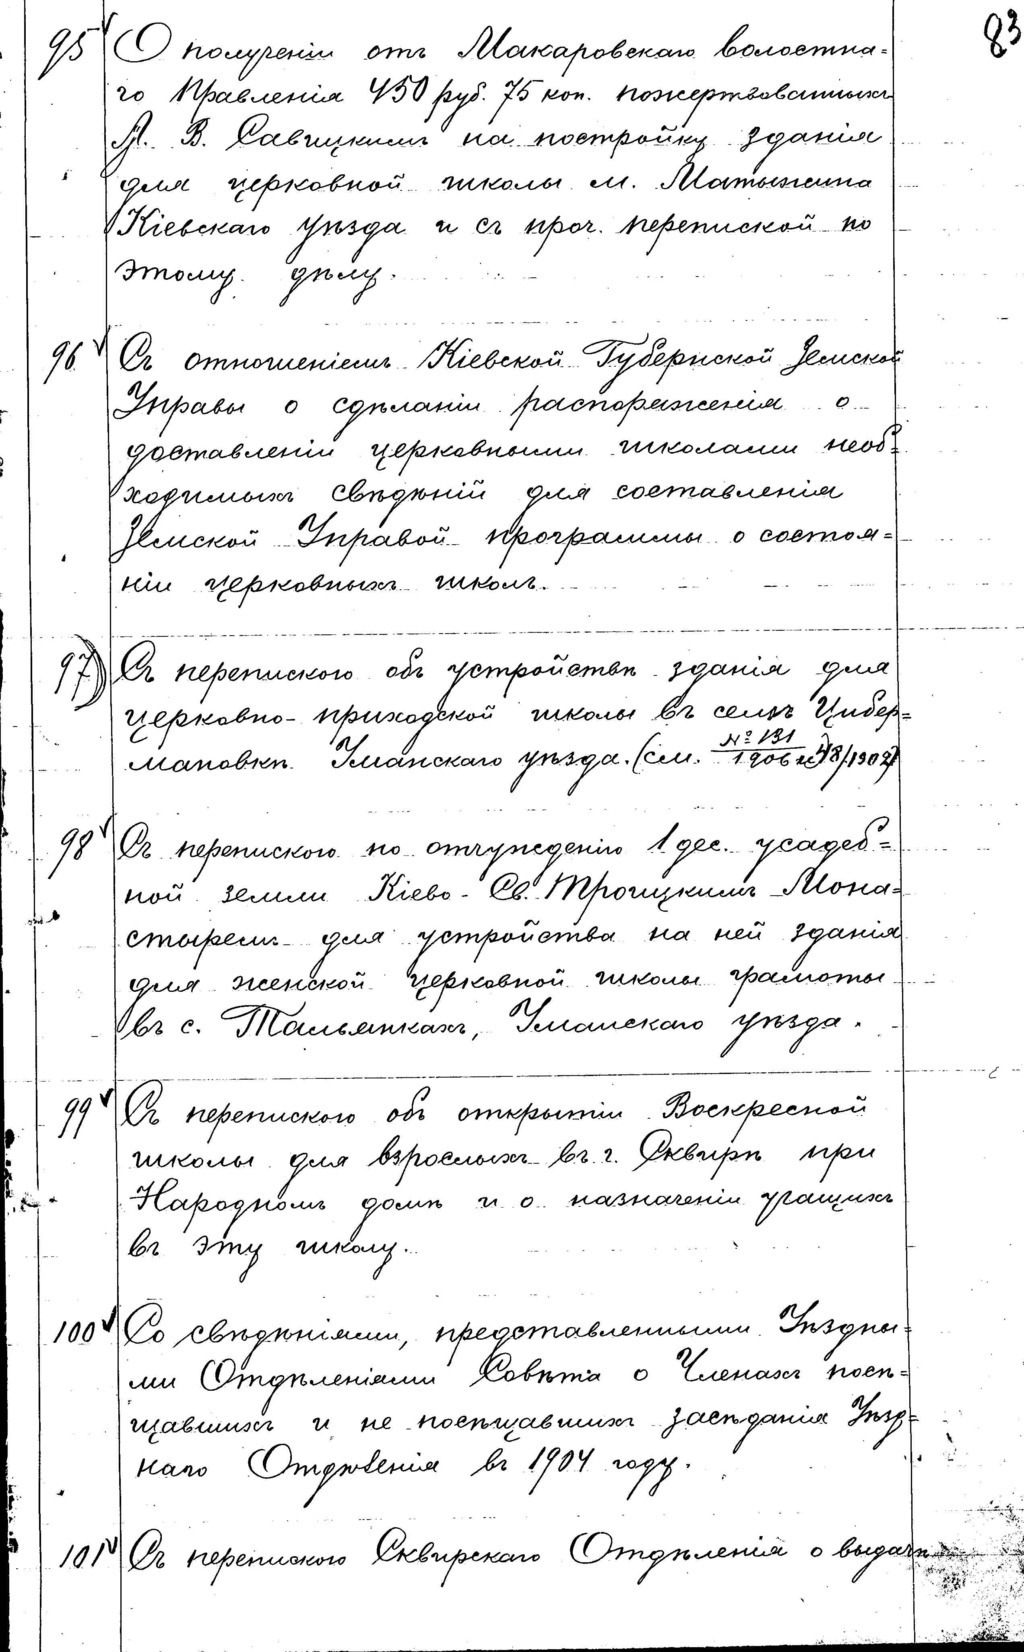 83
95 О полученіи отъ Макаровскаго волостна-
го Правленія 450 руб. 75 коп. пожертвованныхъ
В. Савицкимъ на постройку зданія
для церковной школы м. Мотыжина
Кіевскаго уѣзда и съ проч. перепиской по
этому дѣлу.
96 Съ отношеніемъ Кіевской Губернской Земской
Управы о сдѣланіи распоряженія о
доставленіи церковными школами необ-
ходимыхъ свѣдѣній для составленія
Земской Управой программы о состоя-
ніи церковныхъ школъ.
97) Съ перепискою объ устройствѣ зданія для
церковно-приходской школы въ селѣ Цибер-
мановкѣ Уманскаго уѣзда. (см. № 131/1906 и 48/1902)
98 Съ перепискою по отчужденію 1 дес. усадеб-
ной земли Кіево-Св. Троицкимъ Мона-
стыремъ для устройства на ней зданія
для женской церковной школы грамоты
въ с. Тальянкахъ, Уманскаго уѣзда.
99 Съ перепискою объ открытіи Воскресной
школы для взрослыхъ въ г. Сквирѣ при
Народномъ домѣ и о назначеніи учащихъ
въ эту школу.
100 Со свѣдѣніями, представленными Уѣздны-
ми Отдѣленіями Совѣта о Членахъ посѣ-
щавшихъ и не посѣщавшихъ засѣданія Уѣзд-
наго Отдѣленія въ 1904 году.
101 Съ перепискою Сквирскаго Отдѣленія о выдачѣ